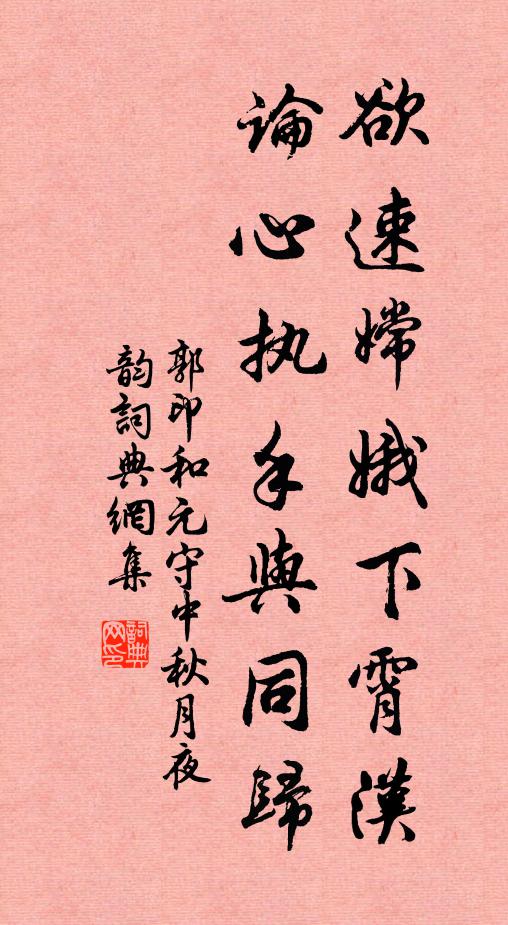 欲速嫦娥下霄漢
論心执手與同歸
郭印和元守中秋月夜
韵詞典網集
詞典网印